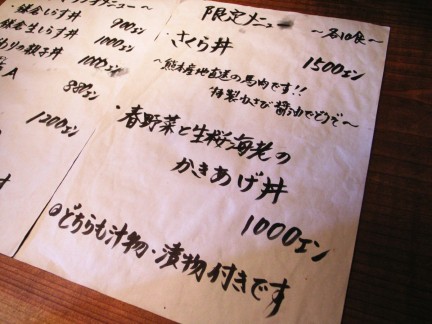 限定メニュー ～各10食～
・さくら丼 1500エン
～熊本産地直送の馬肉です!!
特製わさび醤油でどうぞ～
・春野菜と生桜海老の
かきあげ丼
1000エン
◎どちらも汁物・漬物付きです
メニュー～
鎌倉しらす丼 900エン
鎌倉生しらす丼 1000エン
の親子丼 1000エン
A 880エン
1200エン
す